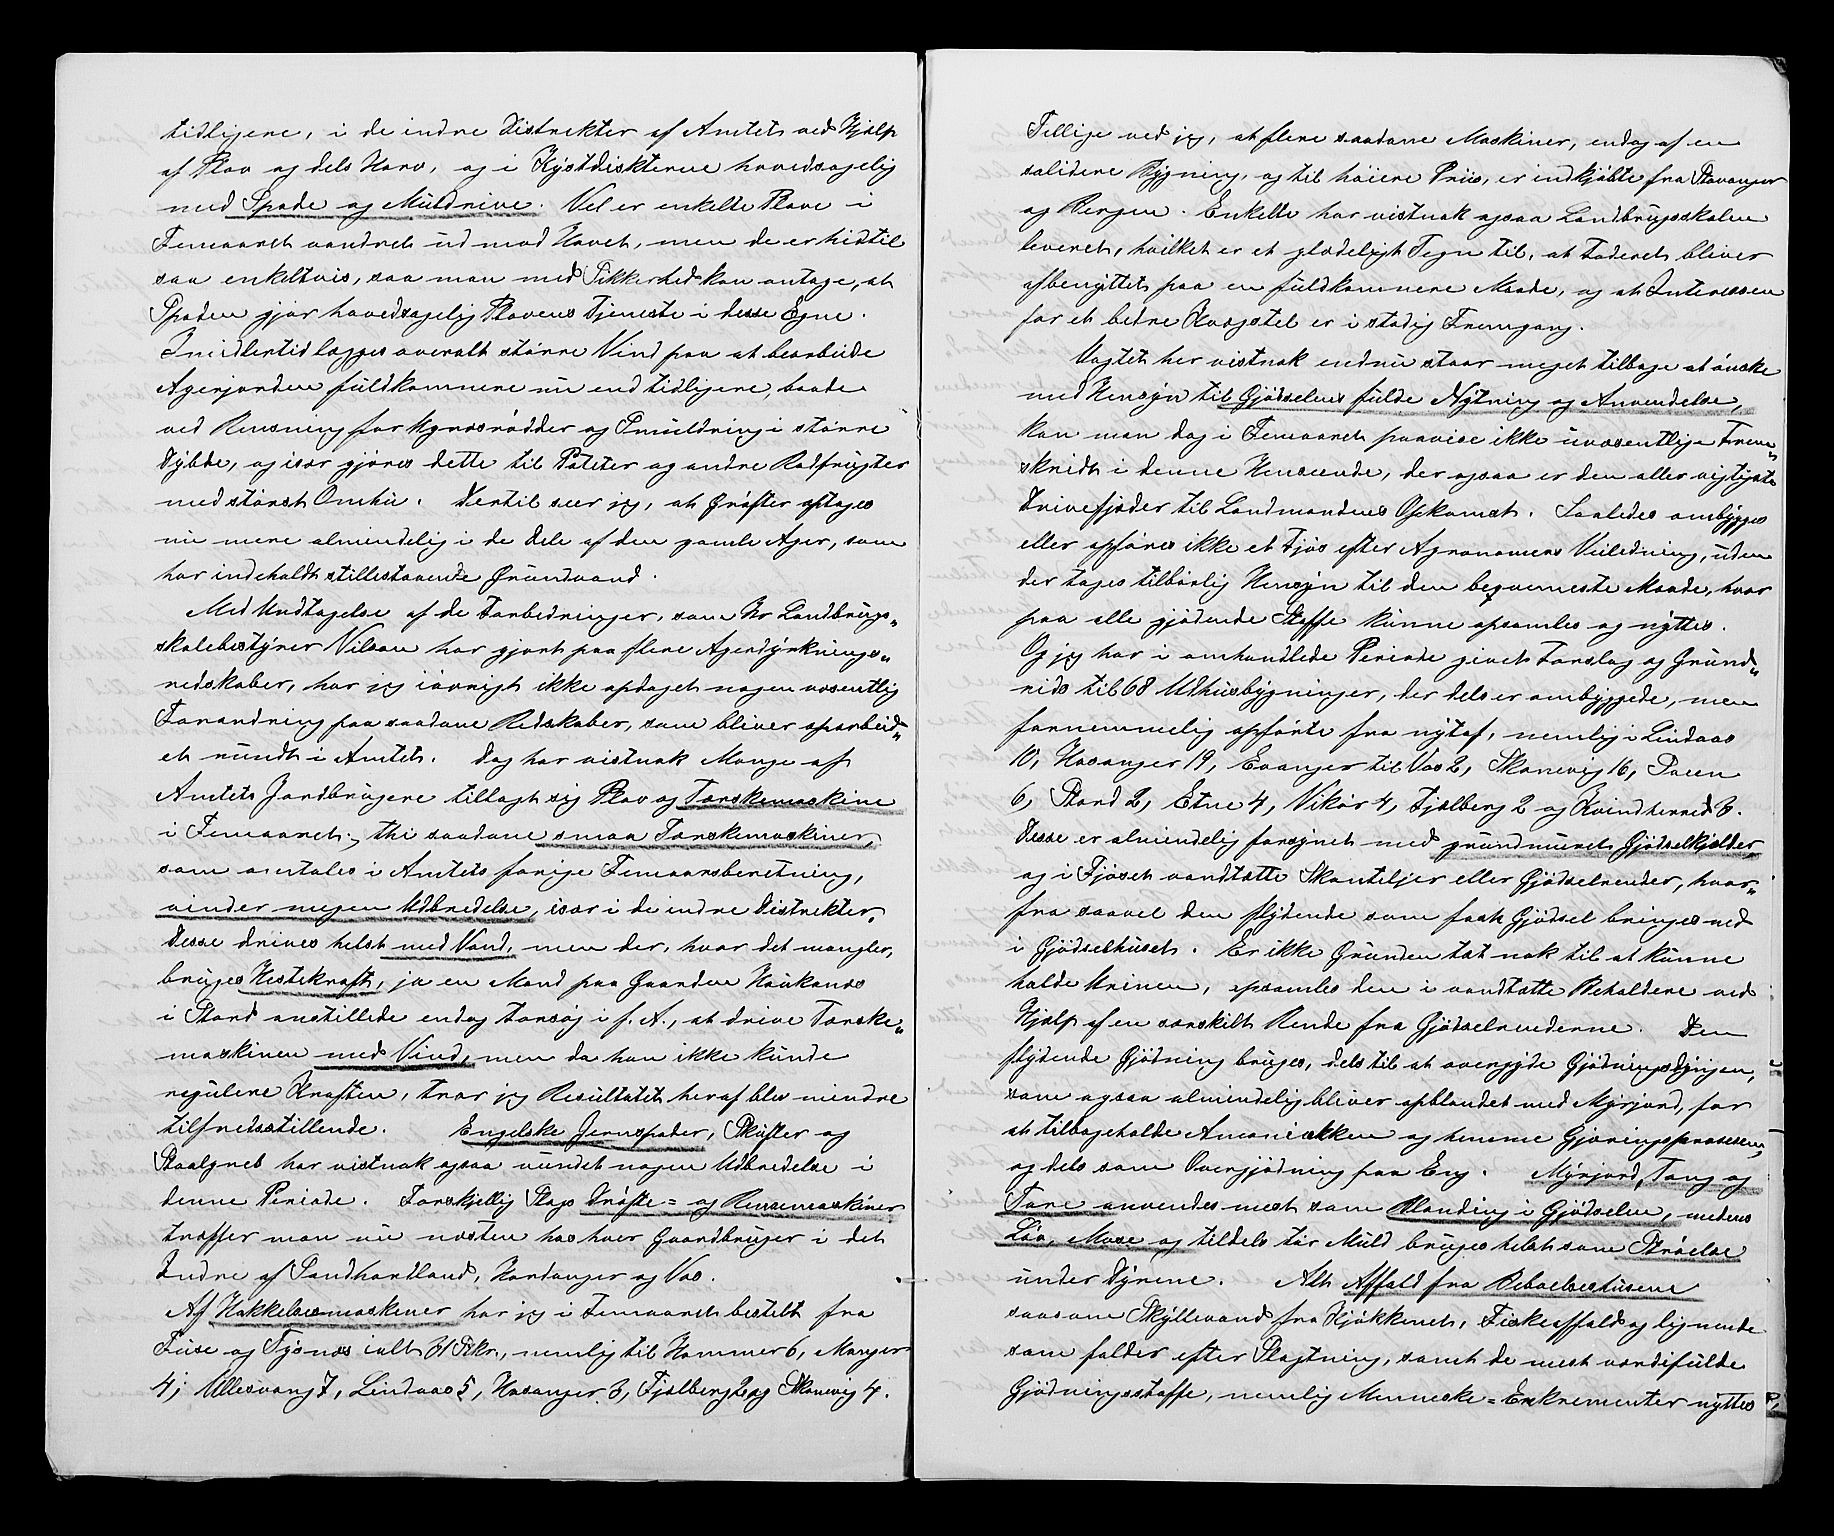 tidligere, i de indre Distrikter af Amtet ved Hjælp
af Plov og dels Harv, og i Kystdisktene hovedsagelig
med Spade og Muldrive. Vel er enkelte Plove i
Femaaret vandret ud mod Havet, men de er hidtil
saa enkeltvis, saa man med Sikkerhed kan antage, at
Spaden gjør hovedsagelig Plovens Tjeneste i desse Egne.
Imidlertid lægges overalt større Vind paa at bearbeide
Agerjorden fuldkomnere nu end tidligere, baade
ved Rensning for Ugræsrødder og Smuldring i større
Dybde, og især gjøres dette til Poteter og andre Rodfrugter
med størst Omhu. Dertil seer jeg, at Grøfter optages
nu mere almindelig i de Dele af den gamle Ager, som
har indeholdt stillestaaende Grundvand.
Med Undtagelse af de Forbedringer, som Hr Landbrugs„
skolebestyrer Vilson har gjort paa flere Agerdyrknings„
redskaber, har jeg iøvrigt ikke opdaget nogen væsentlig
Forandring paa saadane Redskaber, som bliver oparbeid„
et rundt i Amtet. Dog har vistnok Mange af
Amtets Jordbrugere tillagt sig Plov og Tærskemaskine
i Femaaret; thi saadane smaa Tærskemaskiner,
som omtales i Amtets forige Femaarsberetning,
vinder megen Udbredelse, især i de indre Distrikter.
Desse drives helst med Vand, men der, hvor det mangler,
bruges Hestekraft, ja en Mand paa Gaarden Haukanæs
i Stord anstillede endog Forsøg i f. A., at drive Tærske„
maskinen med Vind, men da han ikke kunde
regulere Kraften, tror jeg Resultatet heraf blev mindre
tilfredsstillende. Engelske Jernspader, Skufler og
Staalgreb har vistnok ogsaa vundet nogen Udbredelse i
denne Periode. Forskjellig Slags Drøfte= og Rensemaskiner
træffer man nu næsten hos hver Gaardbruger i det
Indre af Søndhordland, Hardanger og Vos.
Af Hakkelsesmaskiner har jeg i Femaaret bestilt fra
Fuse og Tysnæs ialt 31 Stkr., nemlig til Hammer 6, Manger
4; Ullesvang 7, Lindaas 5, Hosanger 3, Fjælberg 2 og Skonevig 4.
Tillige ved jeg, at flere saadane Maskiner, endog af en
solidere Bygning, og til høiere Priis, er indkjøbte fra Stavanger
og Bergen. Enkelte har vistnok ogsaa Landbrugsskolen
leveret, hvilket er et glædeligt Tegn til, at Foderet bliver
afbenyttet paa en fuldkomnere Maade, og at Interessen
for et bedre Kvægstel er i stadig Fremgang.
Uagtet her vistnok endnu staar meget tilbage at ønske
med Hensyn til Gjødselens fulde Nytning og Anvendelse,
kan man dog i Femaaret paavise ikke uvæsentlige Frem„
skridt i denne Henseende, der ogsaa er den aller vigtigste
Drivefjæder til Landmandens Opkomst. Saaledes ombygges
eller opføres ikke et Fjøs efter Agronomens Veiledning, uden
der tages tilbørlig Hensyn til den beqvemeste Maade, hvor
paa alle gjødende Stoffe kunne opsamles og nyttes.
Og jeg har i omhandlede Periode givet Forslag og Grund„
rids til 68 Udhusbygninger, der dels er ombyggede, men
fornemmelig opførte fra nytaf, nemlig i Lindaas
10, Hosanger 19, Evanger til Vos 2, Skonevig 16, Sveen
6, Stord 2, Etne 4, Vikør 4, Fjælberg 2 og Kvindherred 3.
Desse er almindelig forsynet med grundmuret Gjødselkjelder,
og i Fjøset vandtætte Skantiljer eller Gjødselrender, hvor„
fra saavel den flydende som faste Gjødsel bringes ned
i Gjødselhuset. Er ikke Grunden tæt nok til at kunne
holde Urinen, opsamles den i vandtætte Beholdere ved
Hjælp af en særskilt Rende fra Gjødselrenderne. Den
flydende Gjødning bruges, dels til at overgyde Gjødningsdyngen,
som ogsaa almindelig bliver opblandet med Myrjord, for
at tilbageholde Amoniakken og hemme Gjæringsprosessen,
og dels som Overgjødning paa Eng. Myrjord, Tang og
Tare anvendes mest som Blanding i Gjødselen, medens
Løv, Mose og tildels tør Muld bruges helst som Strøelse
under Dyrene. Alt Affald fra Beboelseshusene
saasom Skyllevand fra Kjøkkenet, Fiskeaffald og lignende
som falder efter Slagtning, samt de mest værdifulde
Gjødningsstoffe, nemlig Menneske=Exkrementer nyttes